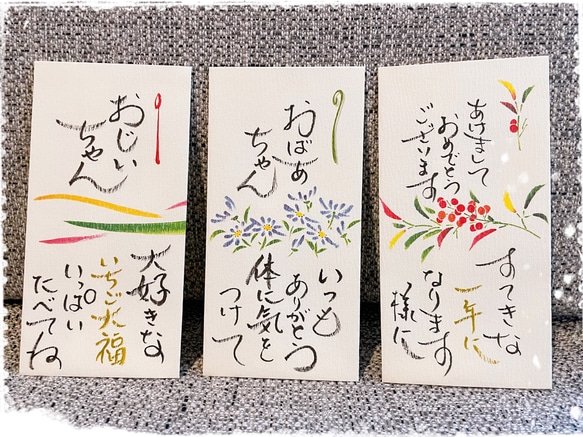 あけまして
おめでとう
ございます
すてきな
一年に
なります
様に
おばあ
ちゃん
いつも
ありがとう
体に気を
つけて
おじい
ちゃん
大好きな
いちご大福
いっぱい
たべてね